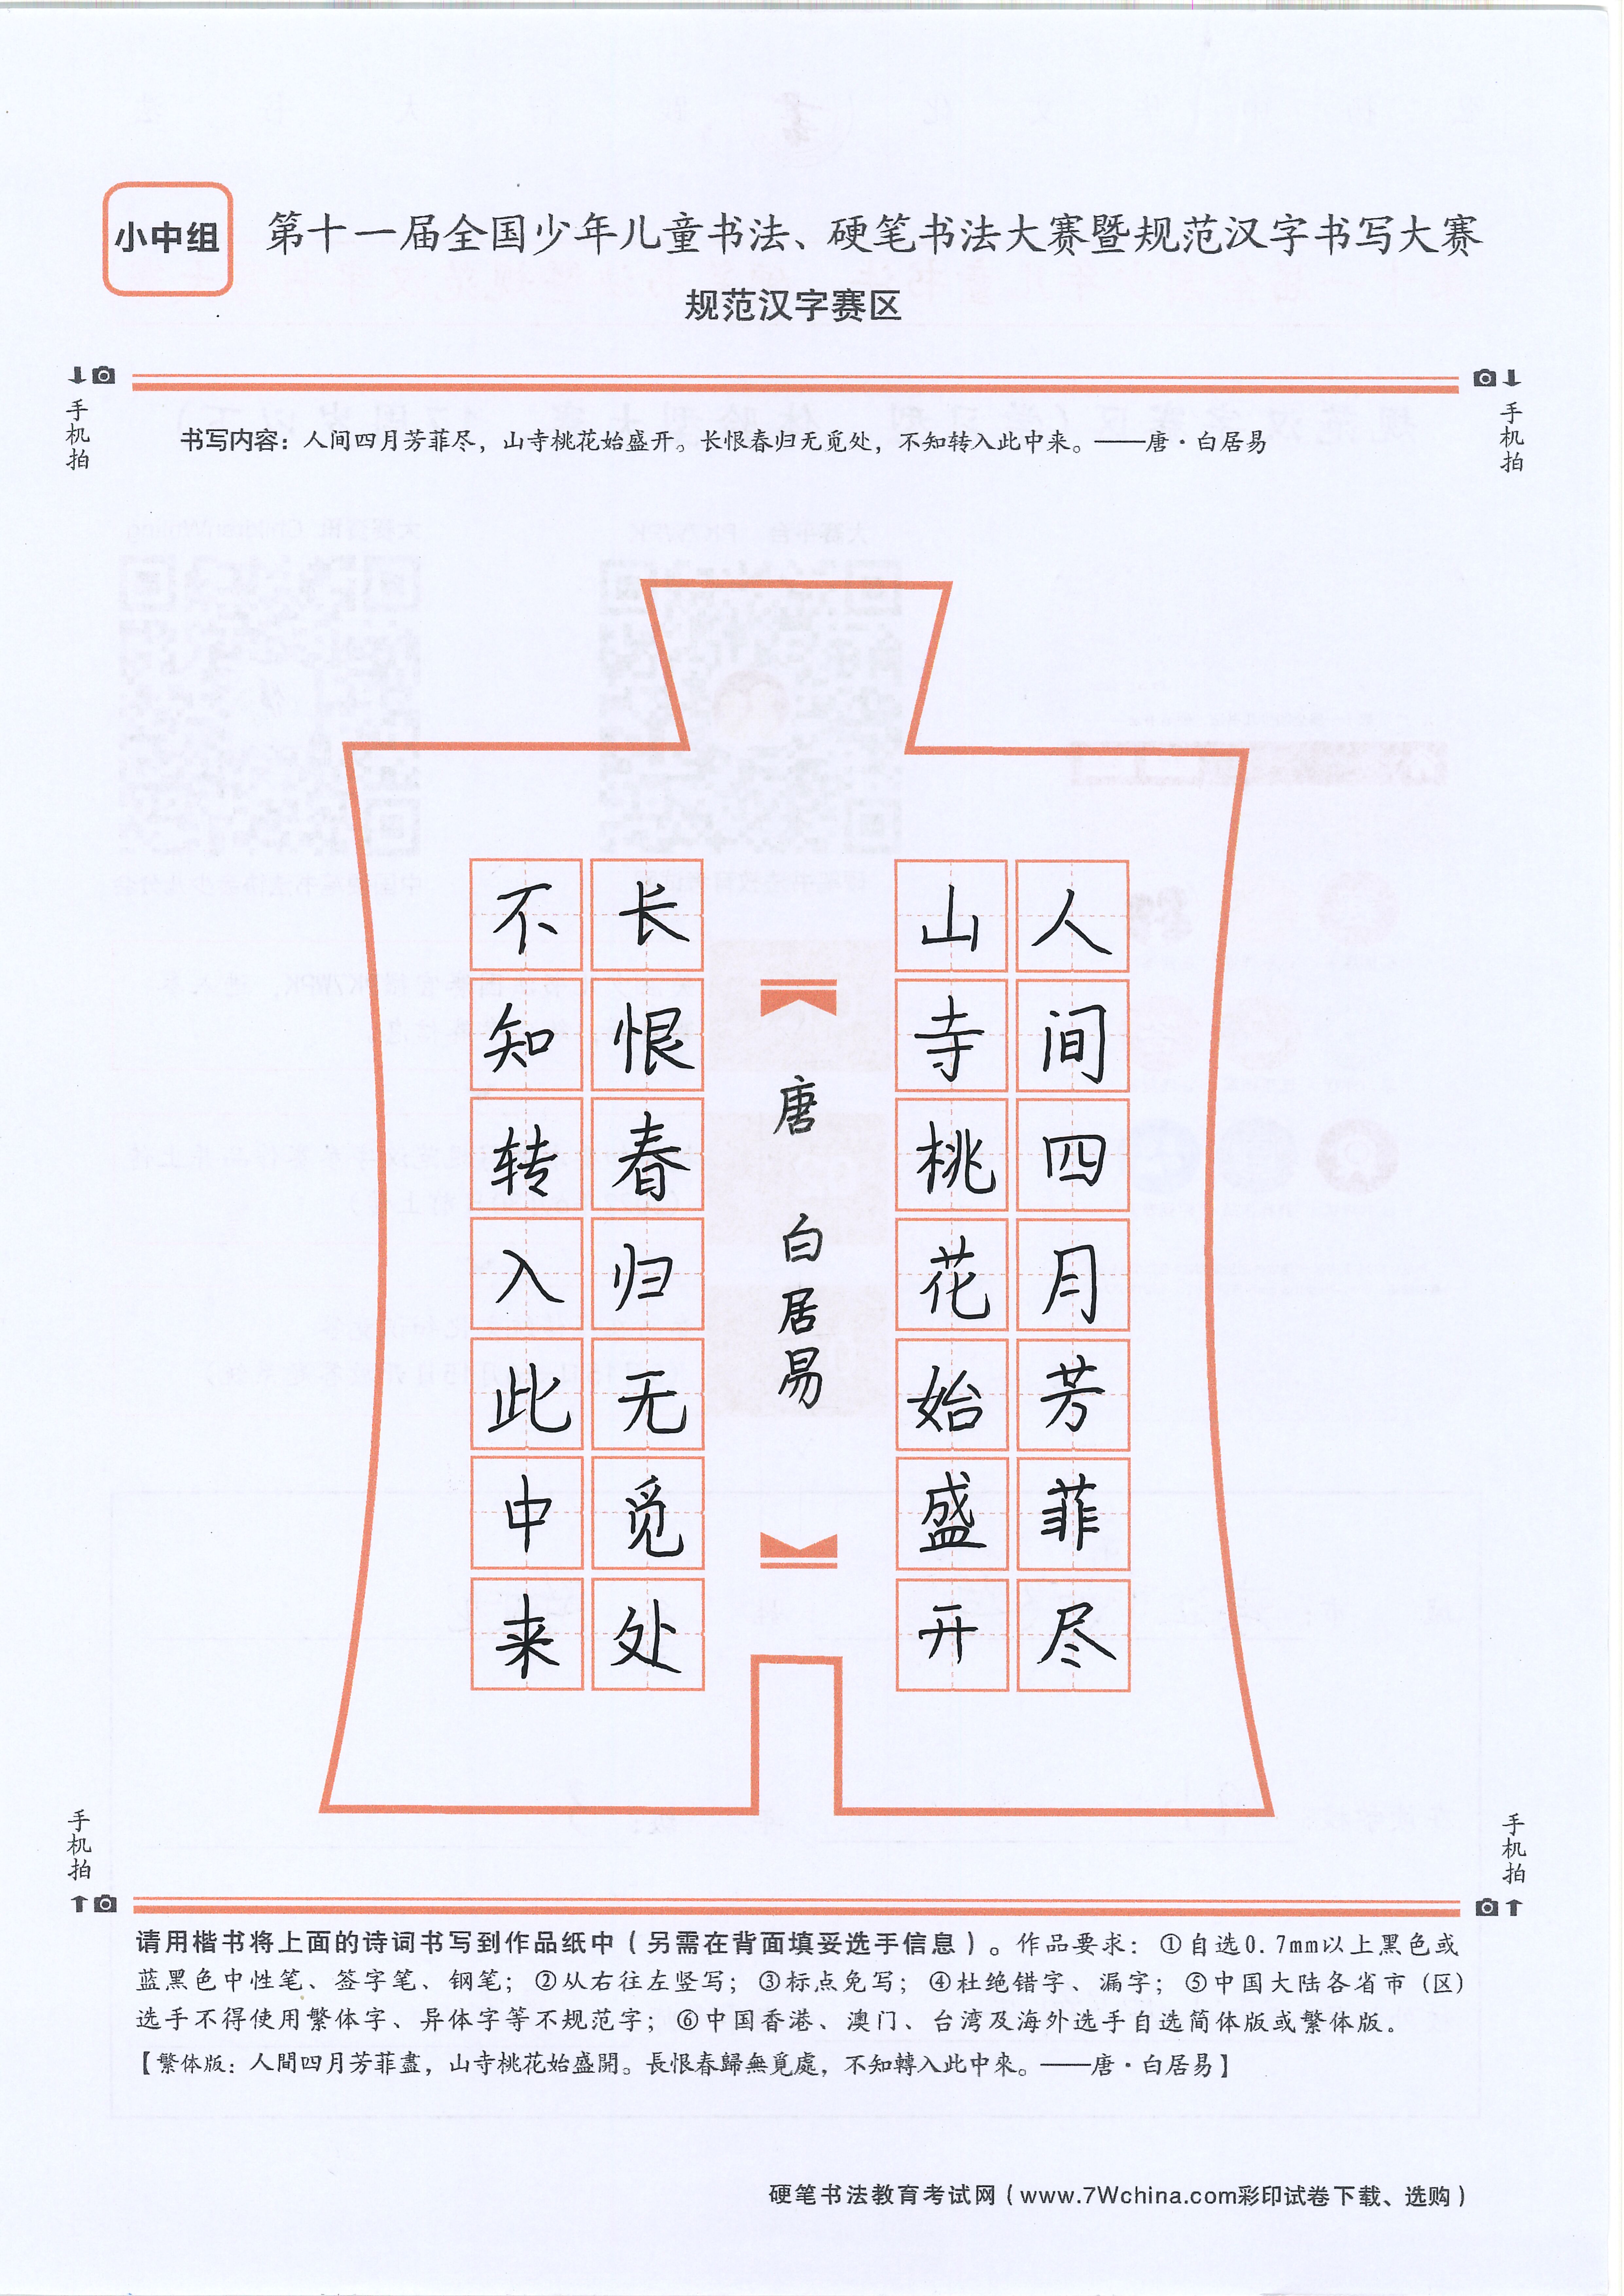 小中组
第十一届全国少年儿童书法、硬笔书法大赛暨规范汉字书写大赛
规范汉字赛区
手机拍
手机拍
书写内容：人间四月芳菲尽，山寺桃花始盛开。长恨春归无觅处，不知转入此中来。——唐·白居易
人间四月芳菲尽
山寺桃花始盛开
唐 白居易
长恨春归无觅处
不知转入此中来
手机拍
手机拍
请用楷书将上面的诗词书写到作品纸中（另需在背面填妥选手信息）。作品要求：①自选0.7mm以上黑色或
蓝黑色中性笔、签字笔、钢笔；②从右往左竖写；③标点免写；④杜绝错字、漏字；⑤中国大陆各省市（区）
选手不得使用繁体字、异体字等不规范字；⑥中国香港、澳门、台湾及海外选手自选简体版或繁体版。
【繁体版：人間四月芳菲盡，山寺桃花始盛開。長恨春歸無覓處，不知轉入此中來。——唐·白居易】
硬笔书法教育考试网（www.7Wchina.com彩印试卷下载、选购）